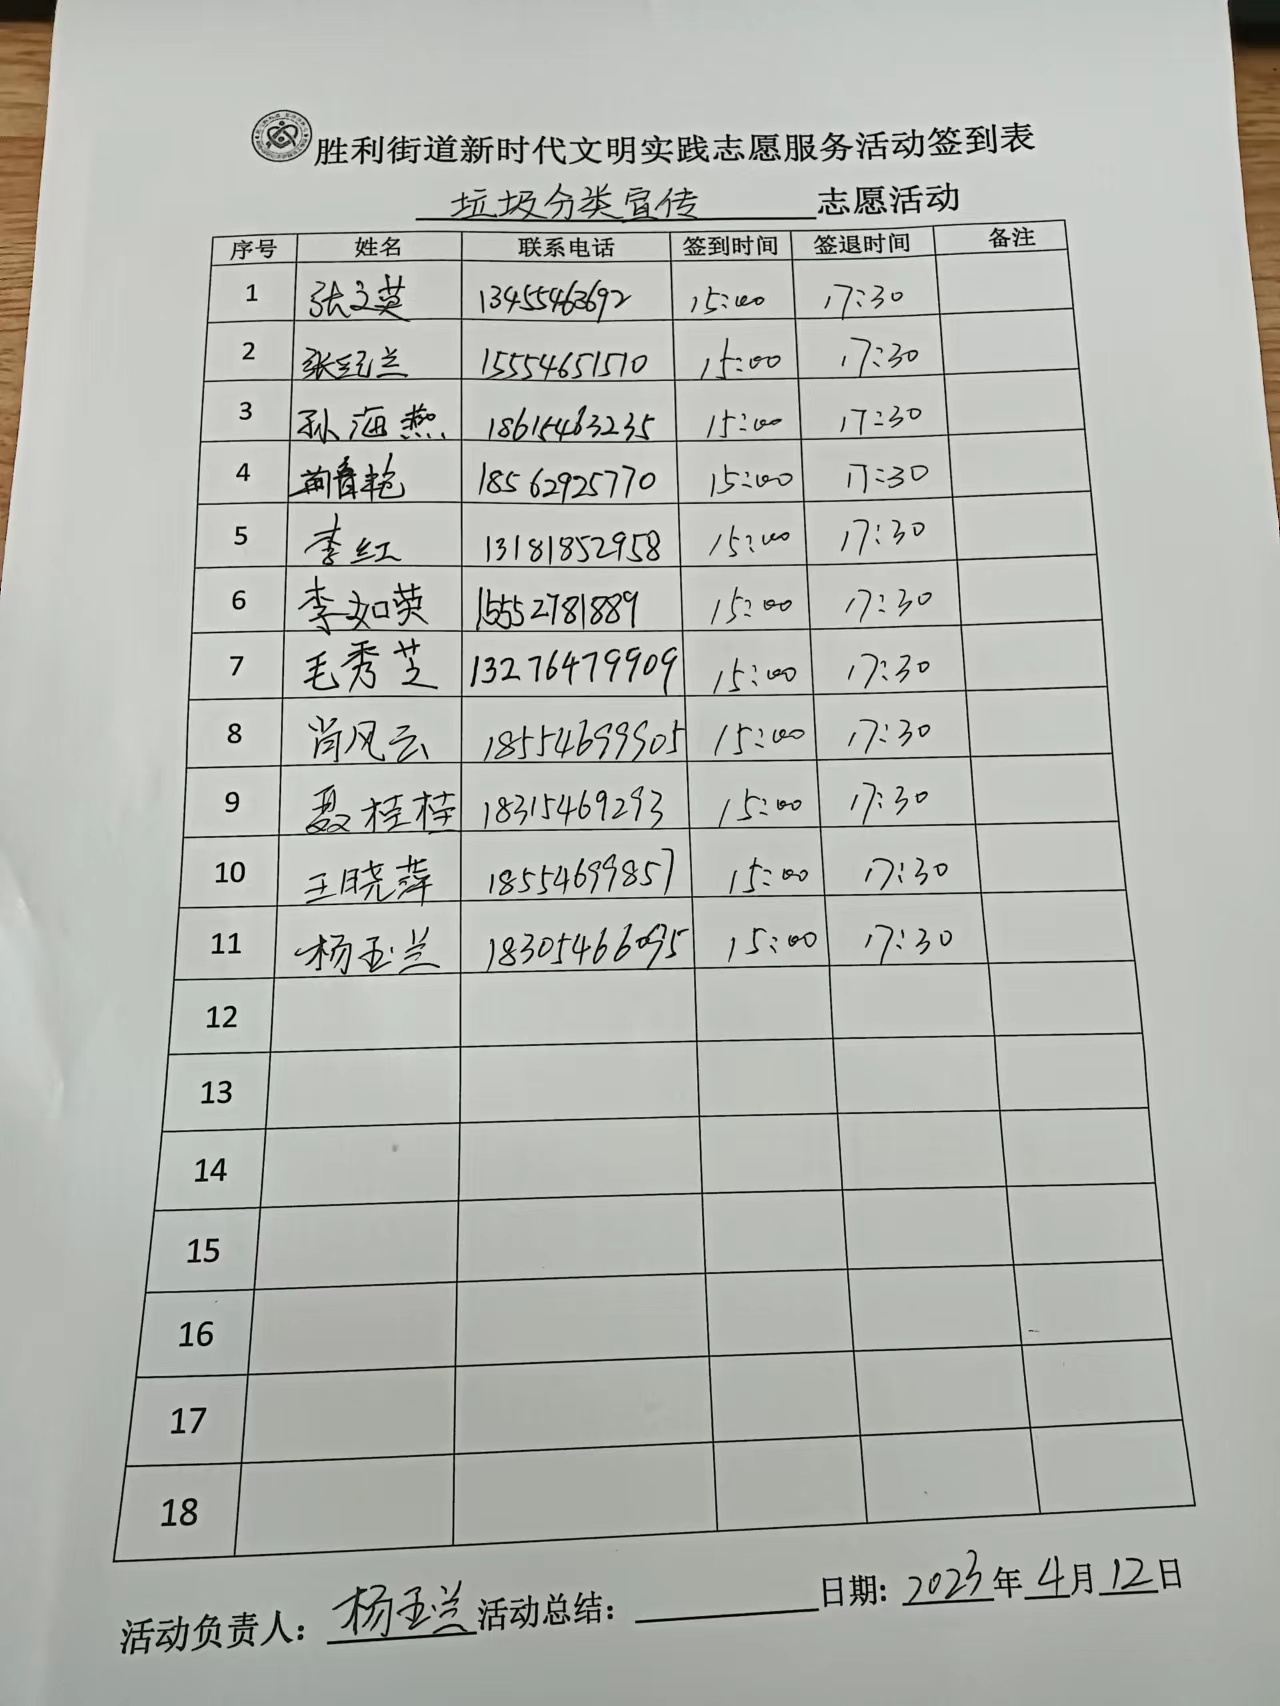 胜利街道新时代文明实践志愿服务活动签到表
垃圾分类宣传 志愿活动
序号 姓名 联系电话 签到时间 签退时间 备注
1 张文英 13455463692 15:00 17:30
2 张纪兰 15554651510 15:00 17:30
3 孙海燕 18615463235 15:00 17:30
4 18562925770 15:00 17:30
5 李红 13181852958 15:00 17:30
6 李如英 15552781889 15:00 17:30
7 毛秀芝 13276479909 15:00 17:30
8 肖风云 18554699905 15:00 17:30
9 聂桂桂 18315469293 15:00 17:30
10 王晓萍 18554699857 15:00 17:30
11 杨玉兰 18305466095 15:00 17:30
12
13
14
15
16
17
18
活动负责人: 杨玉兰 活动总结: 日期: 2023年4月12日